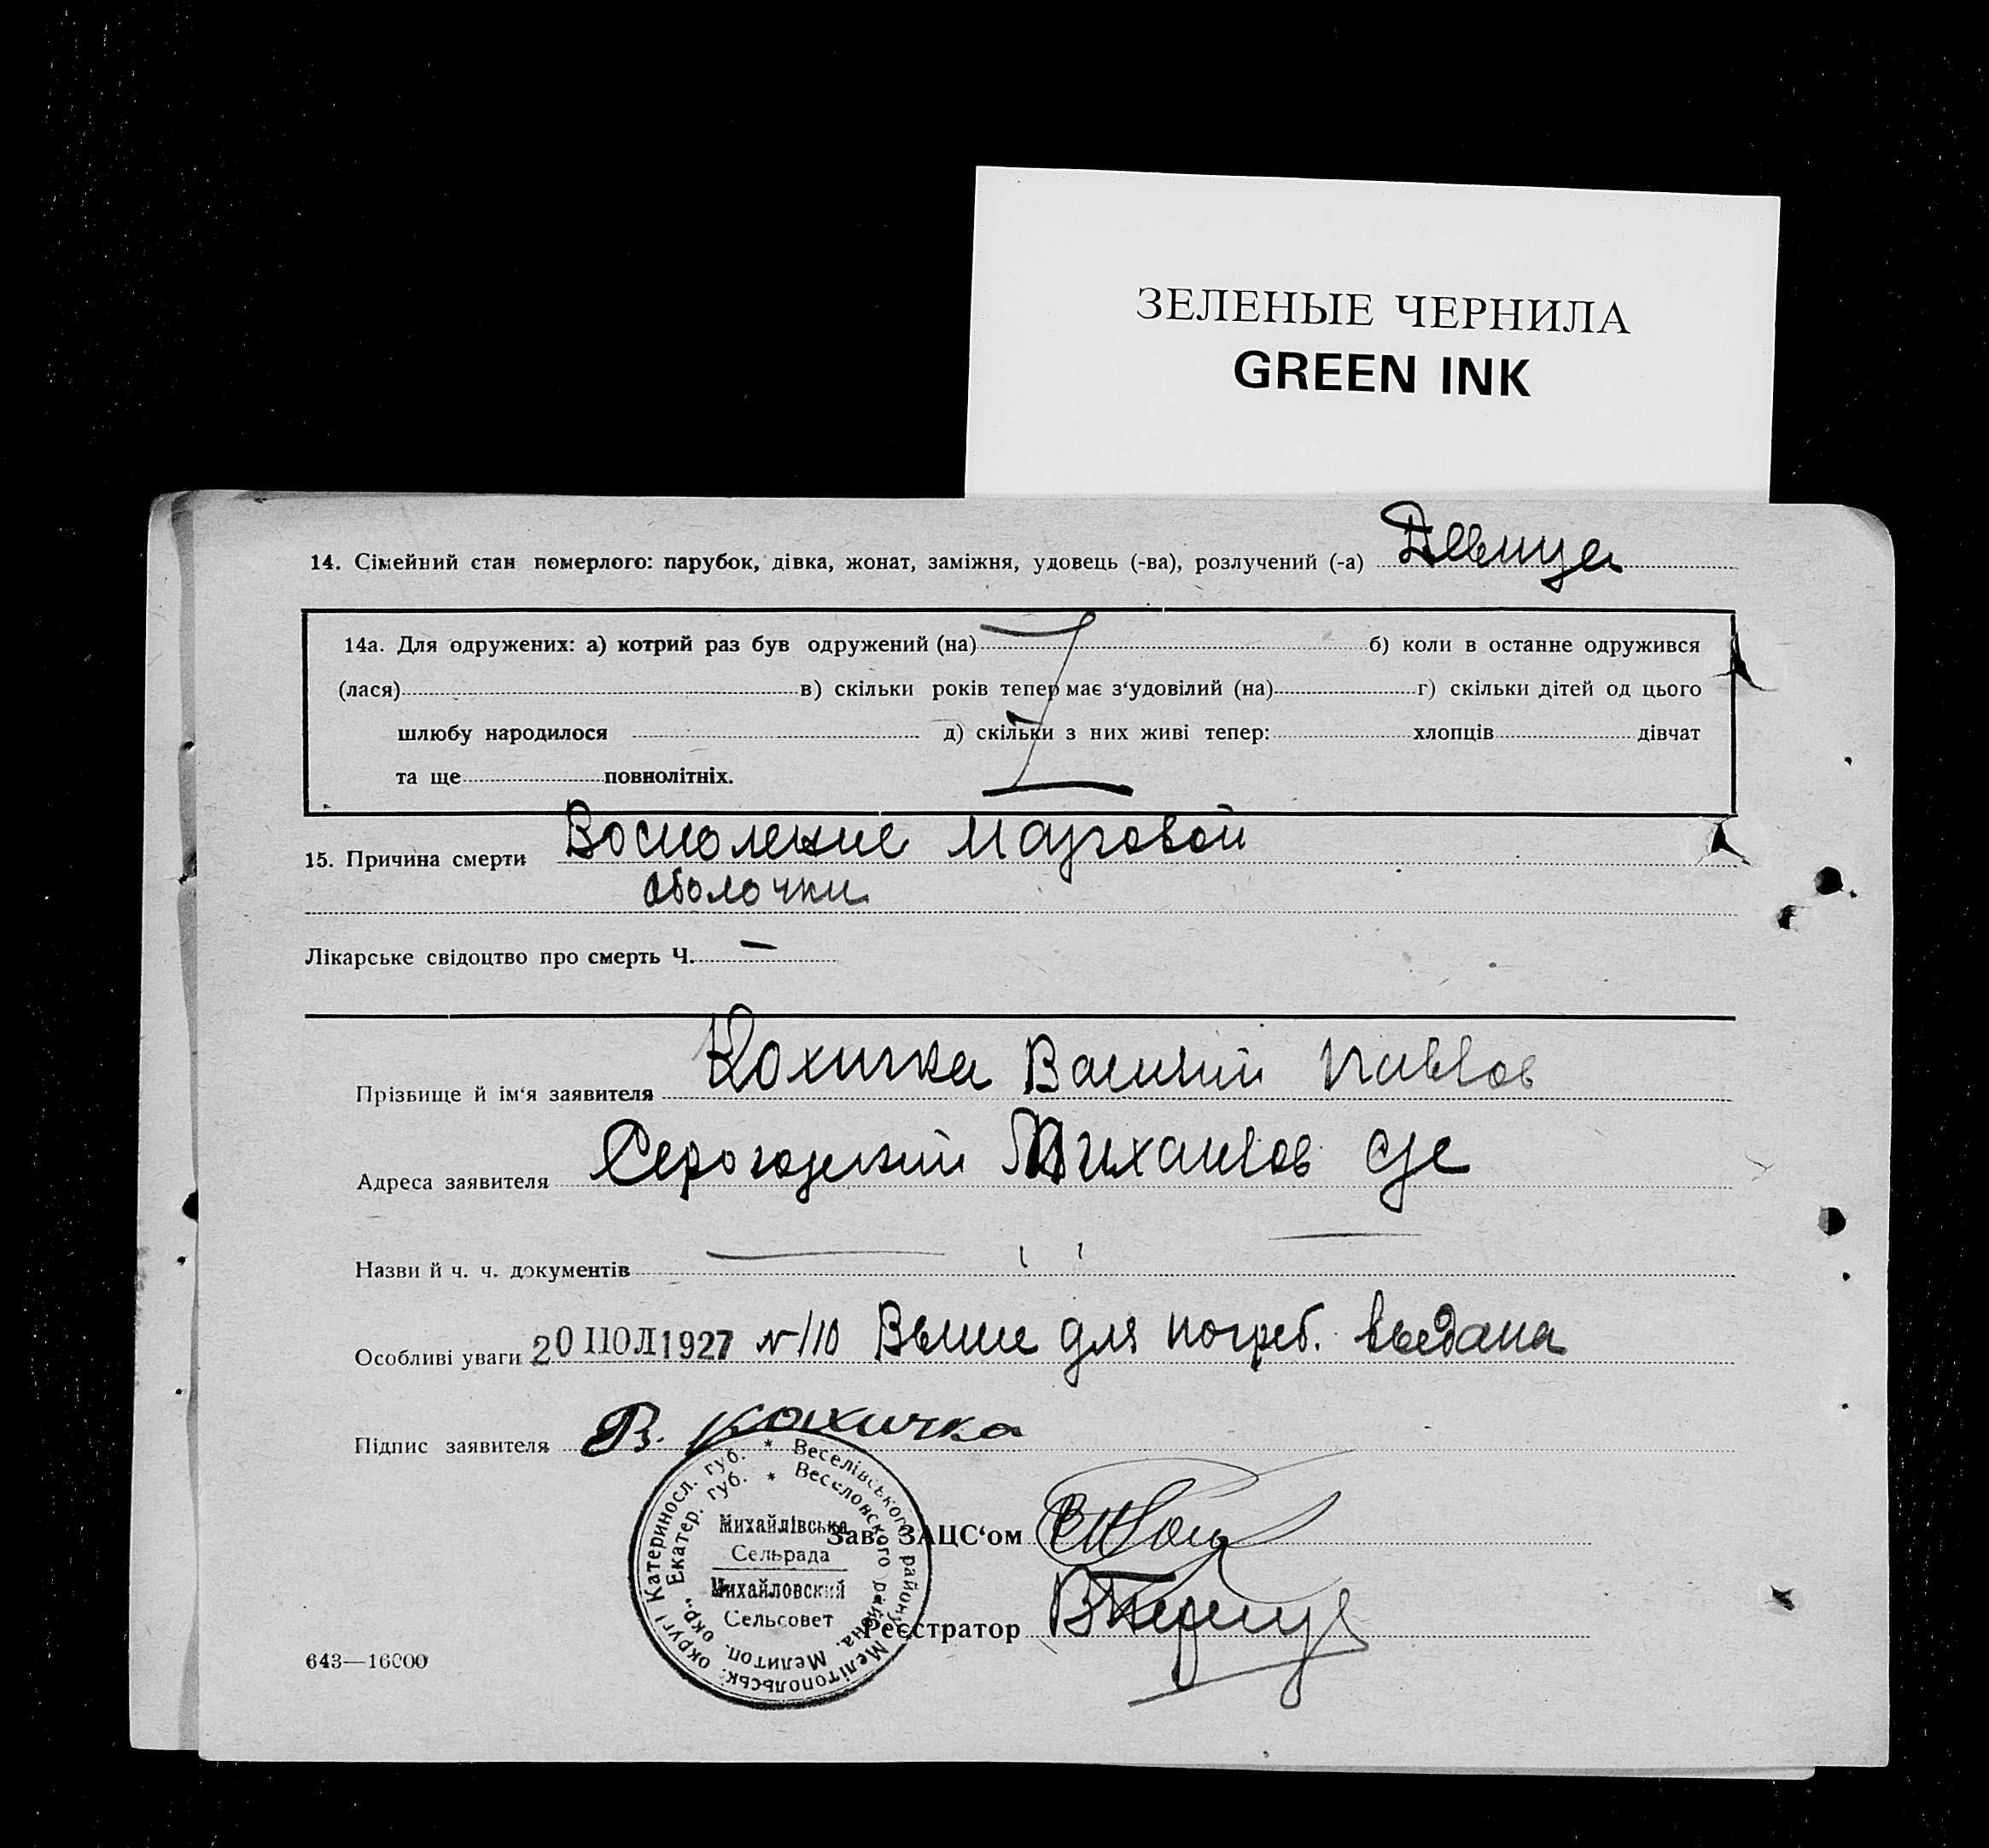 ЗЕЛЕНЫЕ ЧЕРНИЛА
GREEN INK
14. Сімейний стан померлого: парубок, дівка, жонат, заміжня, удовець (-ва), розлучений (-а) Девица
14а. Для одружених: а) котрий раз був одружений (на) б) коли в останнє одружився
(лася) в) скільки років тепер має з‘удовілий (на) г) скільки дітей од цього
шлюбу народилося д) скільки з них живі тепер: хлопців дівчат
та ще повнолітніх.
15. Причина смерти Восполение мазговой
оболочки
Лікарське свідоцтво про смерть Ч. —
Прізвище й ім‘я заявителя Кохичка Василий Павлов
Адреса заявителя Михайлов с/с
Назви й ч. ч. документів
Особливі уваги 20 ІЮЛ 1927 № 110 для погреб. выдана
Підпис заявителя В. Кохичка
Зав. ЗАЦС‘ом
Реєстратор
Катеринosл. губ. * Веселівського району Мелітопольськ. округи
Екатер. губ. * Веселовского района. Мелитоп. окр.
Михайлівська
Сельрада
Михайловский
Сельсовет
643—16000